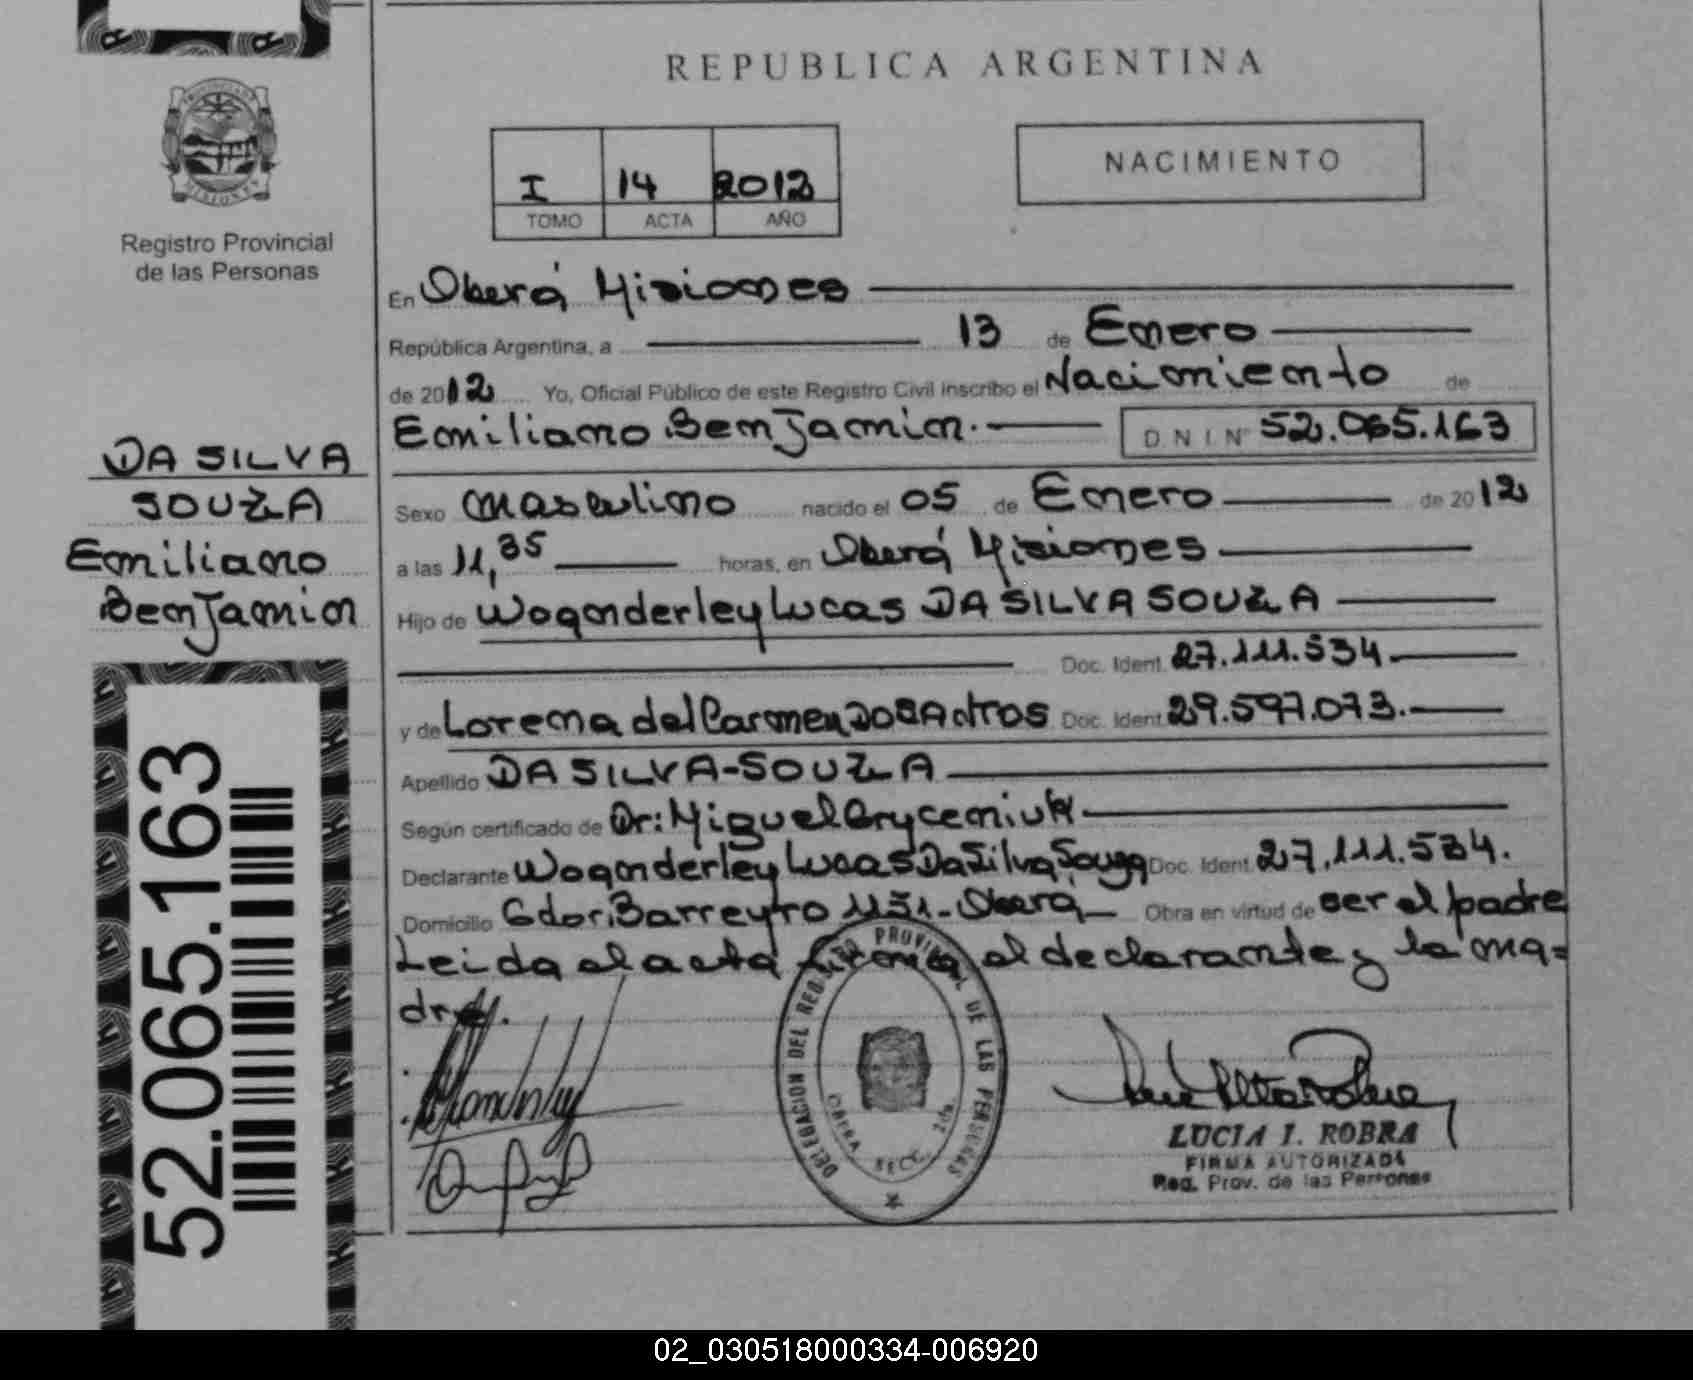 REPUBLICA ARGENTINA
NACIMIENTO
I 14 2012
TOMO ACTA AÑO
Registro Provincial
de las Personas
DA SILVA
SOUZA
Emiliano
Benjamin
52.065.163
En Oberá Misiones
República Argentina, a 13 de Enero
de 2012 Yo, Oficial Público de este Registro Civil inscribo el Nacimiento de
Emiliano Benjamin. DNI Nº 52.065.163
Sexo masculino nacido el 05 de Enero de 2012
a las 11,35 horas, en Oberá Misiones
Hijo de Woanderley Lucas DA SILVA SOUZA
Doc. Ident. 27.111.534.
y de Lorena del Carmen DOSAntros Doc. Ident. 29.597.073.
Apellido DA SILVA-SOUZA
Según certificado de Dr: Miguel
Declarante Woanderley Lucas Da Silva Souza Doc. Ident. 27.111.534.
Domicilio Gdor. Barreyro 1151- Oberá Obra en virtud de ser el padre
Leida el acta el declarante y la ma=
dre.
DELEGACION DEL REGISTRO PROVINCIAL DE LAS PERSONAS
OBERA SECC. 2da.
LUCIA I. ROBRA
FIRMA AUTORIZADA
Reg. Prov. de las Personas
02_030518000334-006920